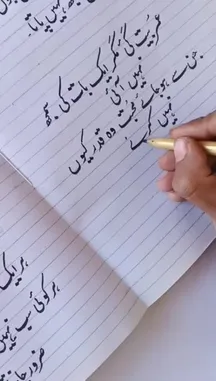 نہیں پاتا۔
عمر بیت گئی مگر ایک بات کی سمجھ
نہیں آئی
جن سے ہو جائے محبت وہ قدر کیوں
نہیں کرتے
ہر ایک
ہر کوئی نہیں
ضرور